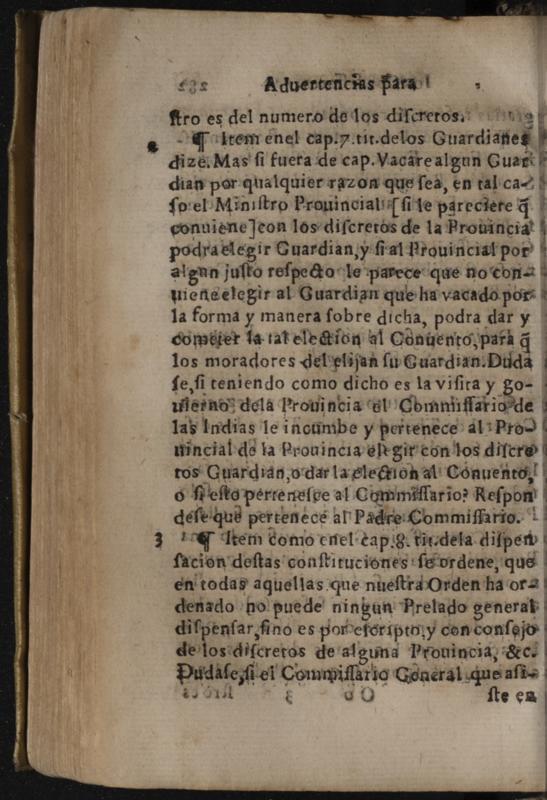 Aduertencias para
stro es del numero de los discretos.
¶ Item enel cap.7.tit.delos Guardianes
dize. Mas si fuera de cap. Vacare algun Guar
dian por qualquier razon que sea, en tal ca-
so el Ministro Prouincial [si le pareciere q̃
conuiene] con los discretos de la Prouincia
podra elegir Guardian, y si al Prouincial por
algun justo respecto le parece que no con-
uiene elegir al Guardian que ha vacado por
la forma y manera sobre dicha, podra dar y
cometer la tal election al Conuento, para q̃
los moradores del elijan su Guardian. Duda
se, si teniendo como dicho es la visita y go-
uierno dela Prouincia el Commissario de
las Indias le incumbe y pertenece al Pro-
uincial de la Prouincia elegir con los discre
tos Guardian, o dar la election al Conuento,
o si esto pertenesce al Commissario? Respon
dese que pertenece al Padre Commissario.
3 ¶ Item como enel cap.8. tit.dela dispen
sacion destas constituciones se ordene, que
en todas aquellas que nuestra Orden ha or-
denado no puede ningun Prelado general
dispensar, sino es por escripto, y con consejo
de los discretos de alguna Prouincia, &c.
Dudase, si el Commissario General que asi-
ste en